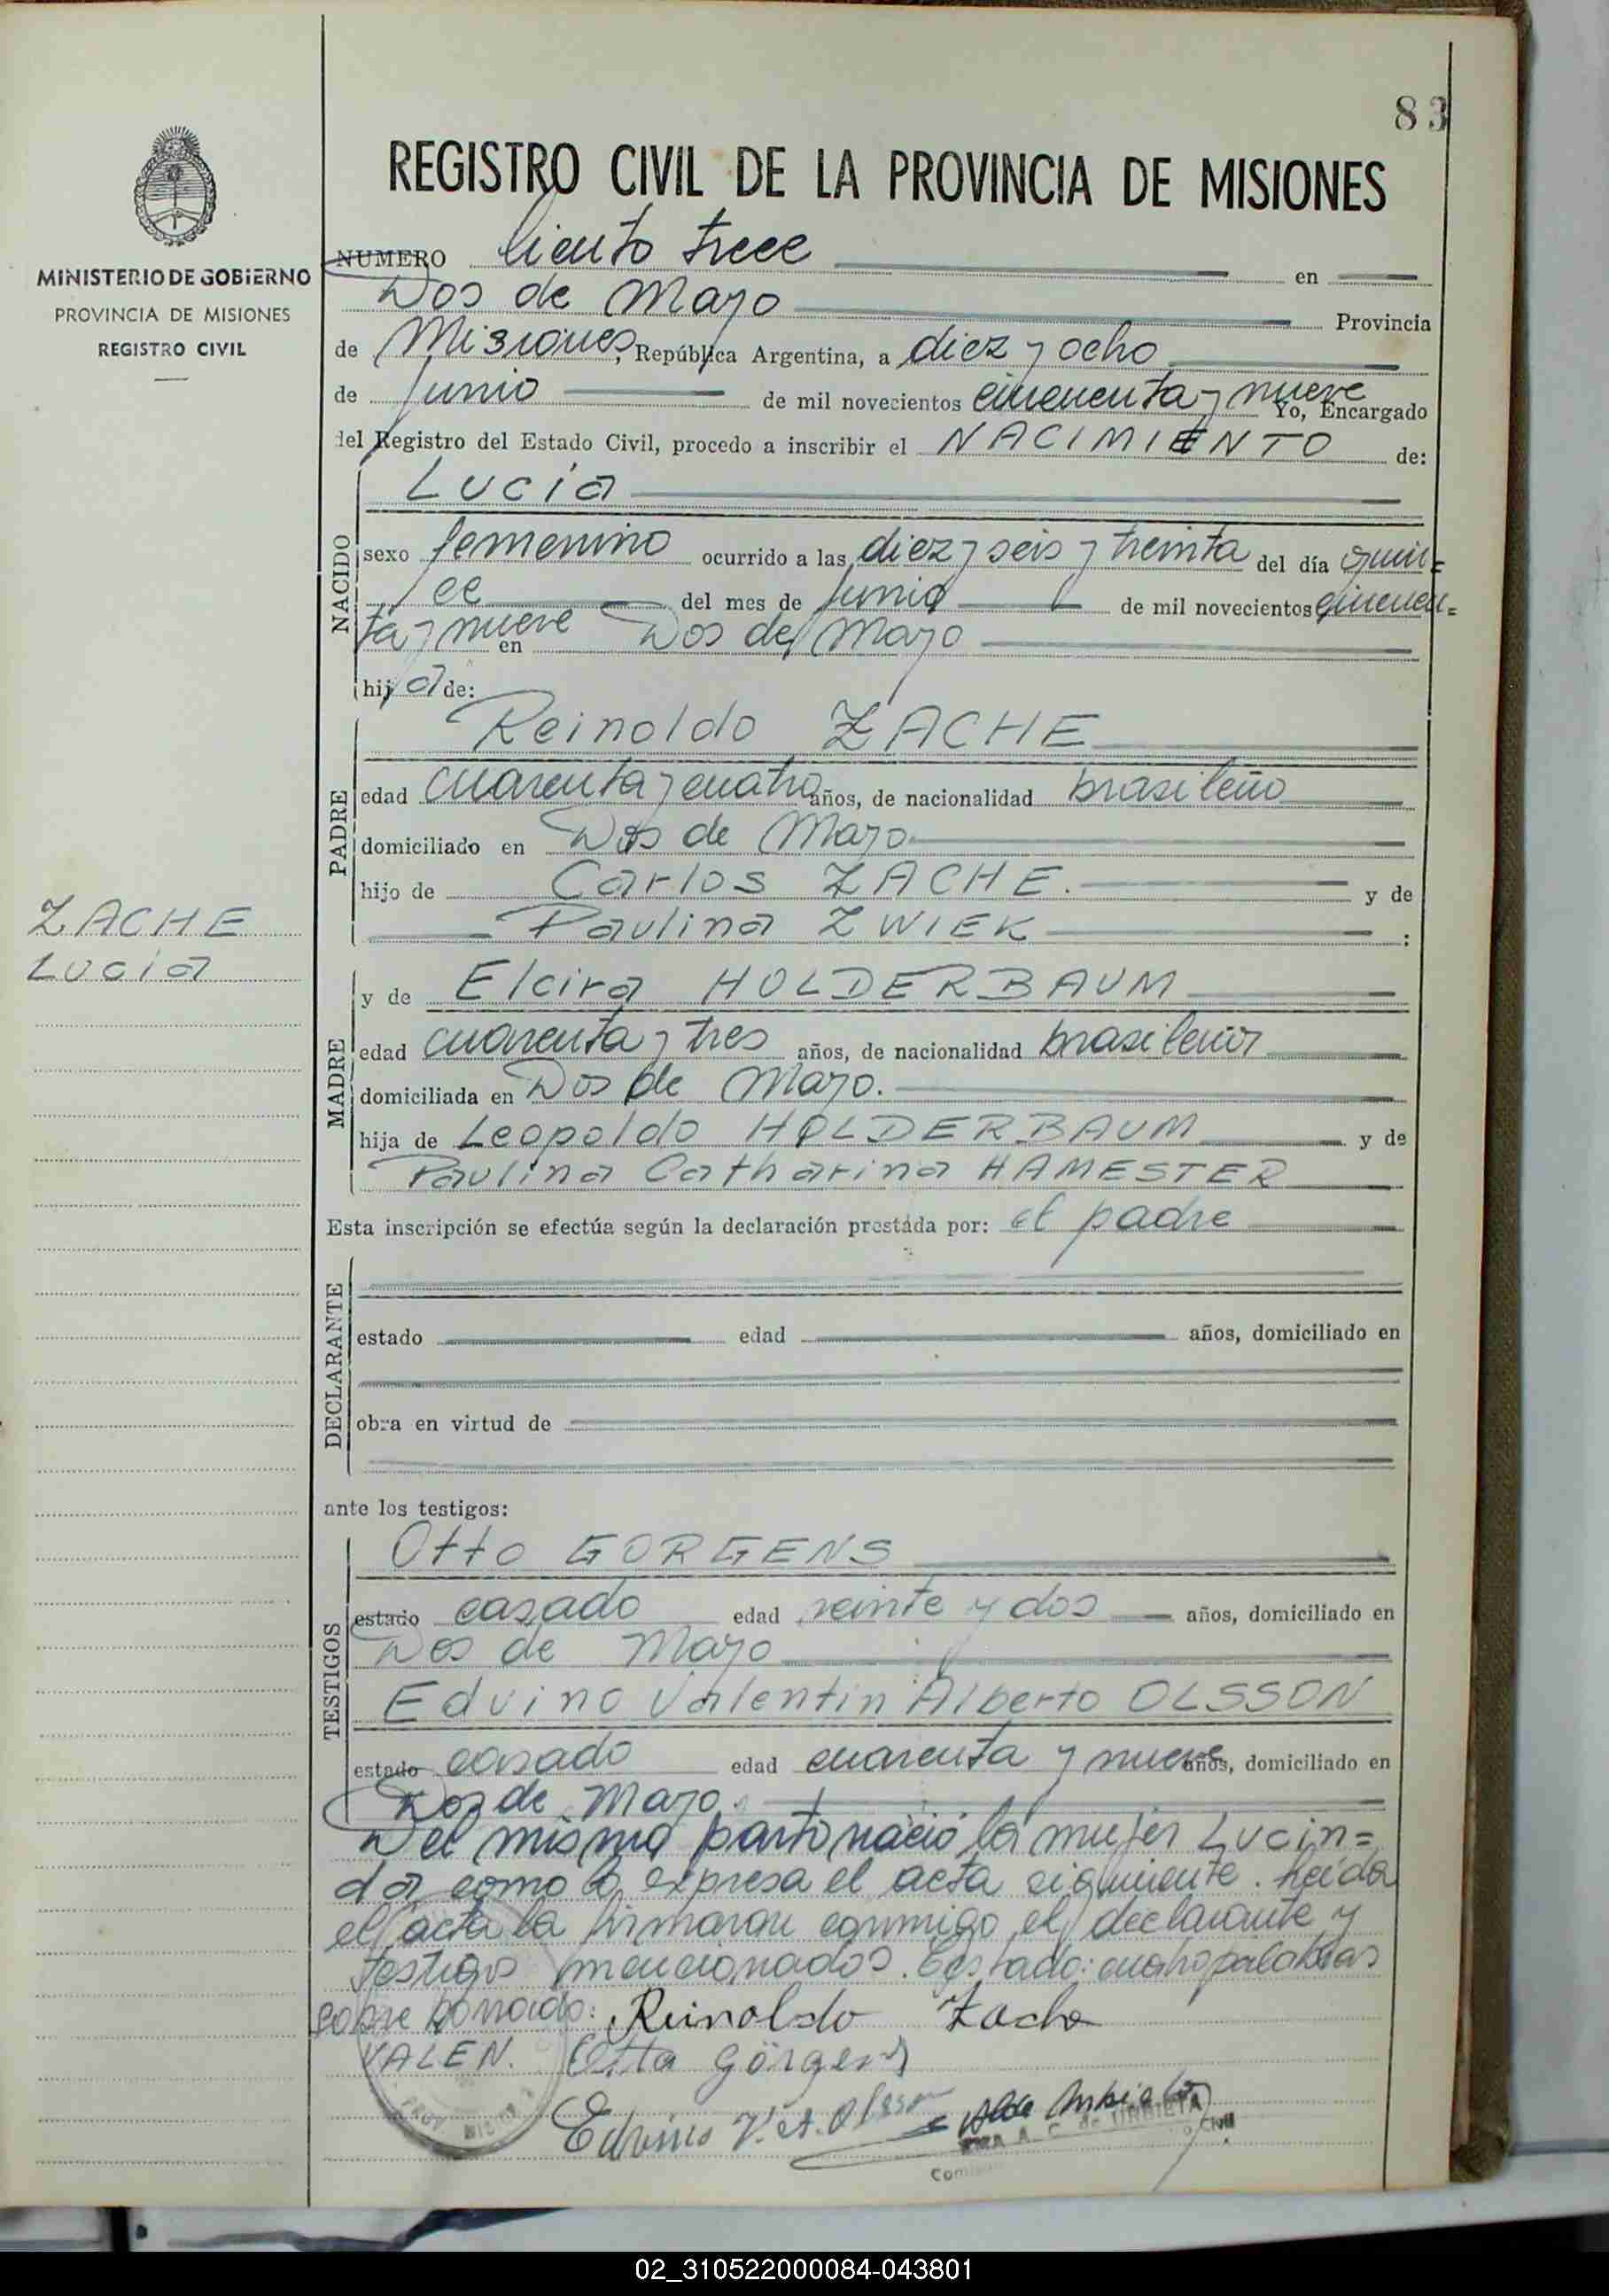 83
REGISTRO CIVIL DE LA PROVINCIA DE MISIONES
MINISTERIO DE GOBIERNO
PROVINCIA DE MISIONES
REGISTRO CIVIL
NUMERO Ciento trece en
Dos de Mayo Provincia
de Misiones, República Argentina, a diez y ocho
de Junio de mil novecientos cincuenta y nueve Yo, Encargado
del Registro del Estado Civil, procedo a inscribir el NACIMIENTO de:
NACIDO
Lucia
sexo femenino ocurrido a las diez y seis y treinta del día quin=
ce del mes de Junio de mil novecientos cincuen=
ta y nueve en Dos de Mayo
hija de:
PADRE
Reinoldo ZACHE
edad cuarenta y cuatro años, de nacionalidad brasileño
domiciliado en Dos de Mayo
hijo de Carlos ZACHE. y de
Paulina ZWIEK :
ZACHE
Lucia
MADRE
y de Elcira HOLDERBAUM
edad cuarenta y tres años, de nacionalidad brasileña
domiciliada en Dos de Mayo.
hija de Leopoldo HOLDERBAUM y de
Paulina Catharina HAMESTER
Esta inscripción se efectúa según la declaración prestada por: el padre
DECLARANTE
estado edad años, domiciliado en
obra en virtud de
ante los testigos:
TESTIGOS
Otto GORGENS
estado casado edad veinte y dos años, domiciliado en
Dos de Mayo
Edvino Valentin Alberto OLSSON
estado casado edad cuarenta y nueve años, domiciliado en
Dos de Mayo.
Del mismo parto nació la mujer Lucin=
da como lo expresa el acta siguiente. Leida
el acta la firmaron conmigo el declarante y
testigos mencionados. Testado: cuatro palabras
sobre borrado:
VALEN. Reinoldo Zache
Otto Görgens
Edvino V. A. Olsson
A. C. de URBIETA
02_310522000084-043801